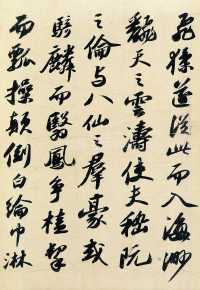 飛猱遂從此而入海渺
翻天之雲濤使夫嵇阮
之倫与八仙之羣豪或
騎麟而翳鳳爭榼挈
而瓢操顛倒白綸巾淋